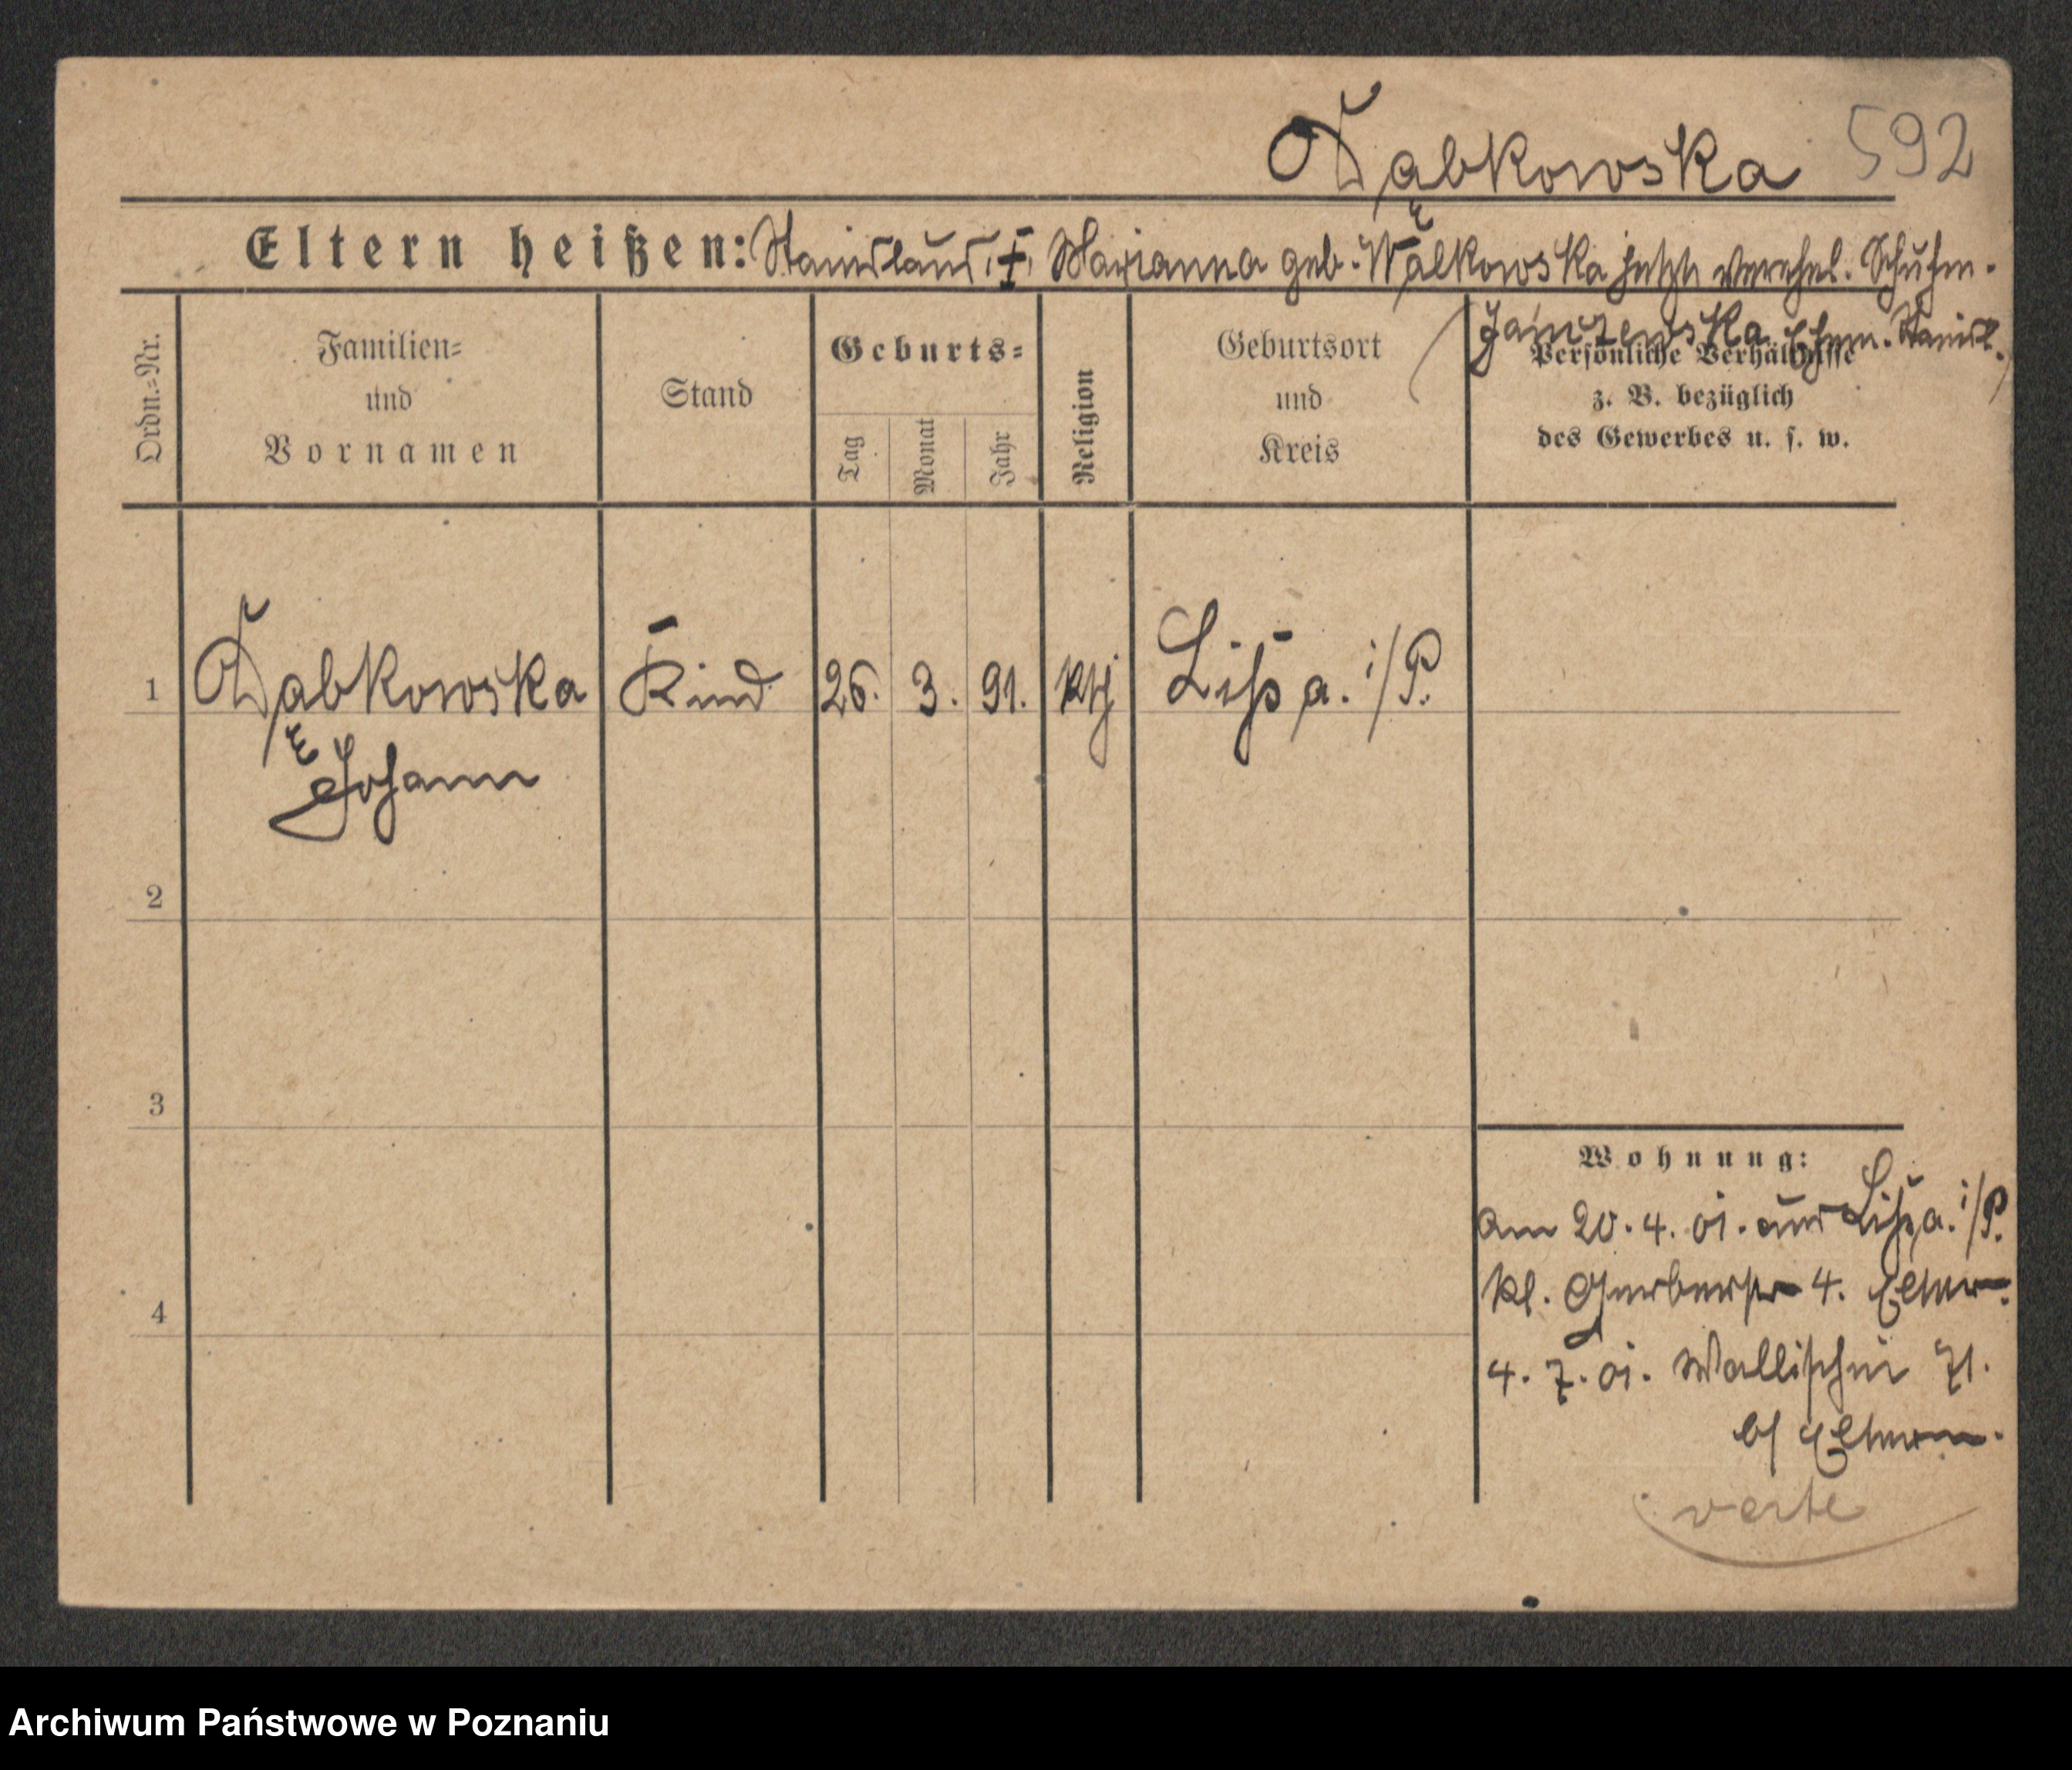 Dąbkowska 592
Eltern heißen: Stanislaus, †, Marianna geb. Walkowska jetzt verehel. Schuhm.
Janczewska, Ehem. Stanisl.
Ordn.=Nr.
Familien=
und
Vornamen
Stand
Geburts=
Tag
Monat
Jahr
Religion
Geburtsort
und
Kreis
Persönliche Verhältnisse
z. B. bezüglich
des Gewerbes u. s. w.
1 Dąbkowska Kind 26. 3. 91. kth Lissa. i/P.
Johann
2
3
4
Wohnung:
am 20. 4. 01. aus Lissa. i/P.
kl. Gerberstr 4. Eltern.
4. 7. 01. Wallischei 71.
b/ Eltern.
verte
Archiwum Państwowe w Poznaniu